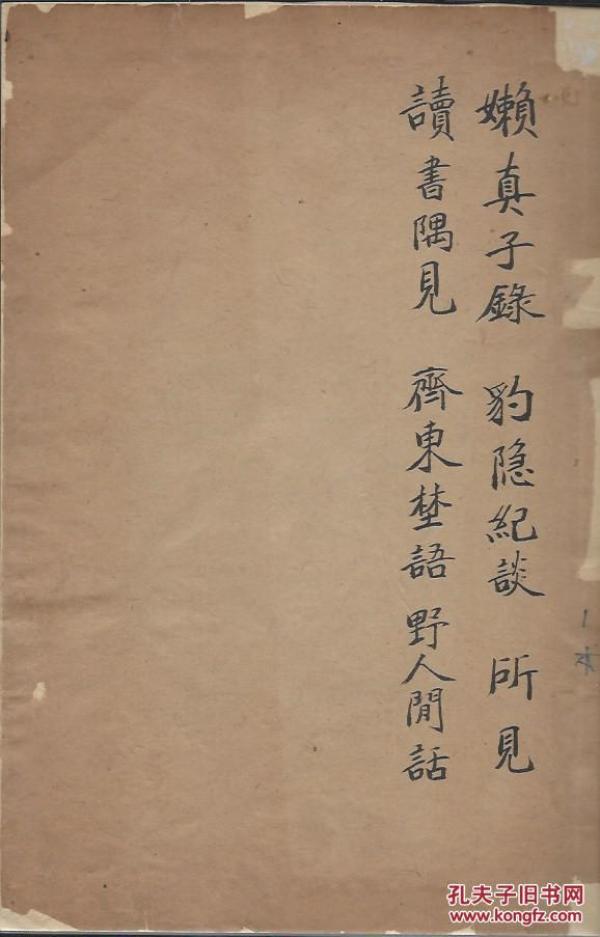 嬾真子錄 豹隐紀談 所見
讀書隅見 齊東埜語 野人閒話
1本
孔夫子旧书网
www.kongfz.com